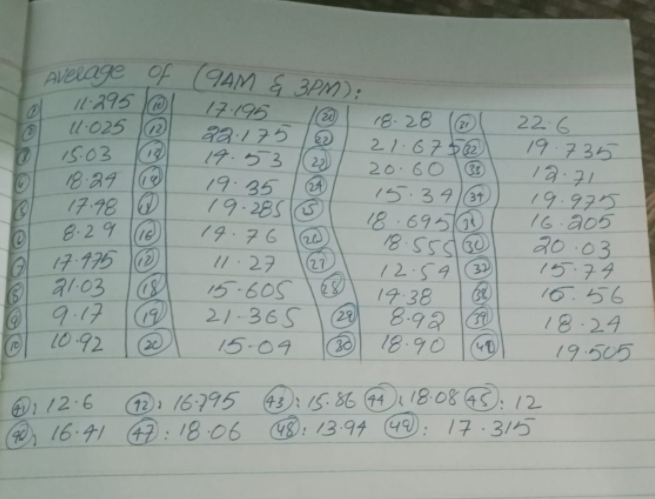 AVERAGE OF (9AM & 3PM):
① 11.295 ⑪ 17.195 ㉑ 18.28 ㉛ 22.6
② 11.025 ⑫ 22.175 ㉒ 21.675 ㉜ 19.735
③ 15.03 ⑬ 14.53 ㉓ 20.60 ㉝ 12.71
④ 18.24 ⑭ 19.35 ㉔ 15.34 ㉞ 19.975
⑤ 17.48 19.285 18.695 16.205
⑥ 8.29 ⑯ 14.76 ㉖ 18.555 ㊱ 20.03
⑦ 17.475 11.27 ㉗ 12.54 ㊲ 15.74
⑧ 21.03 ⑱ 15.605 ㉘ 14.38 ㊳ 16.56
⑨ 9.17 ⑲ 21.365 ㉙ 8.92 ㊴ 18.24
⑩ 10.92 ⑳ 15.04 ㉚ 18.90 19.505
㊶: 12.6 ㊷: 16.795 ㊸: 15.86 ㊹: 18.08 ㊺: 12
16.41 ㊼: 18.06 ㊽: 13.94 ㊾: 17.315